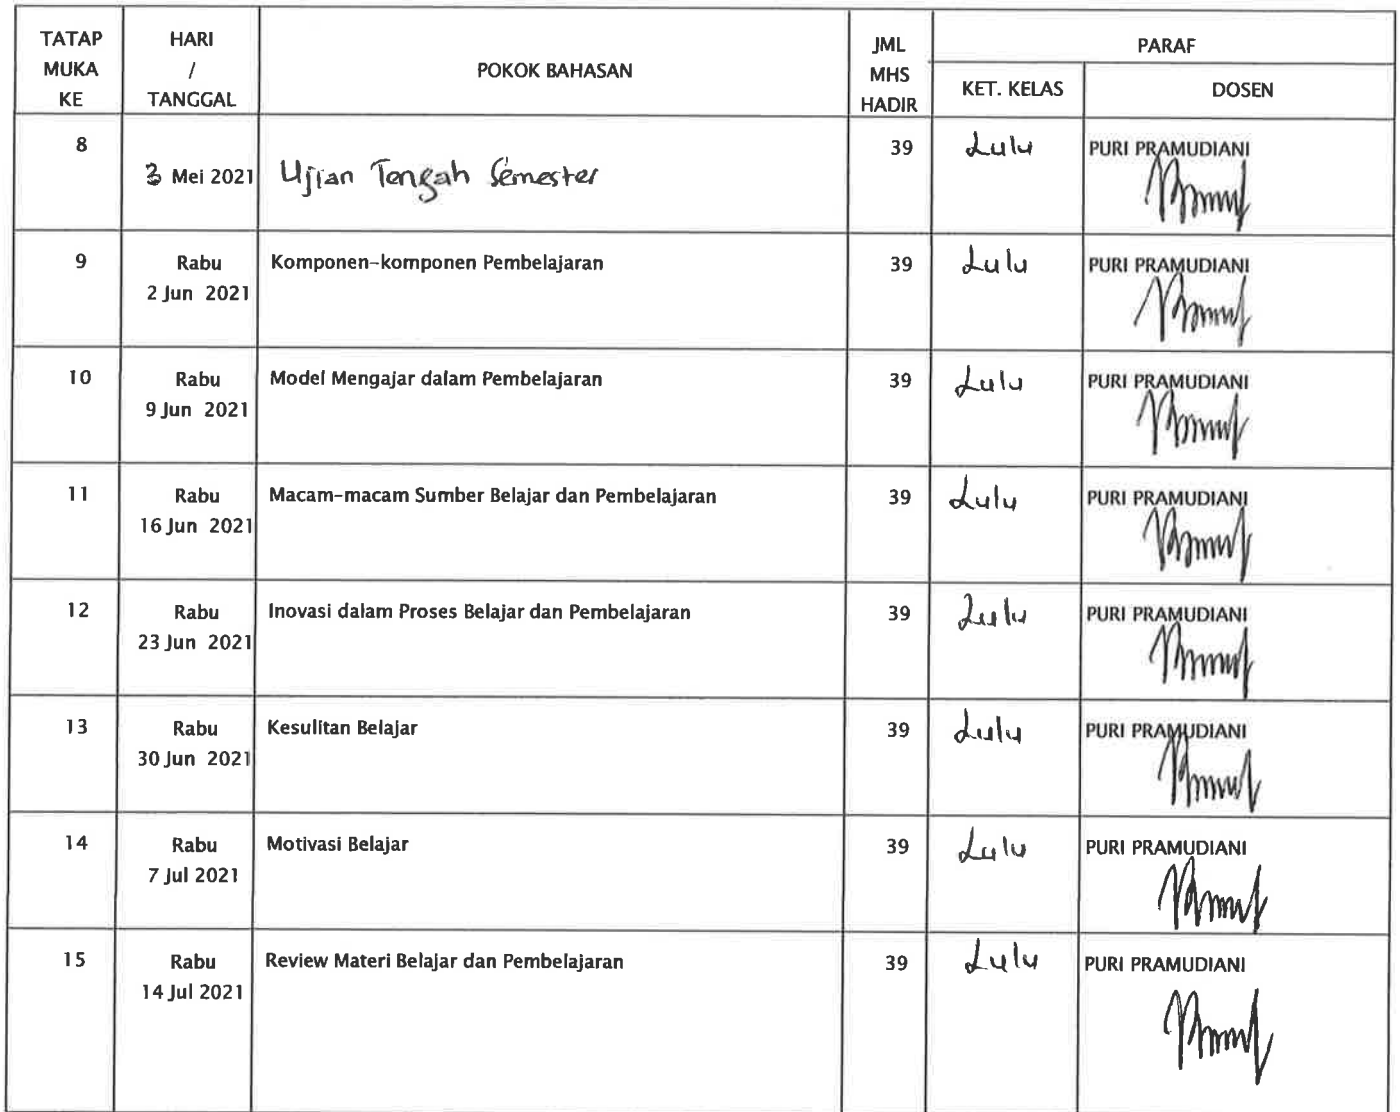 TATAP MUKA KE
HARI / TANGGAL
POKOK BAHASAN
JML MHS HADIR
PARAF
KET. KELAS
DOSEN
8
3 Mei 2021
Ujian Tengah Semester
39
Lulu
PURI PRAMUDIANI
9
Rabu
2 Jun 2021
Komponen-komponen Pembelajaran
39
Lulu
PURI PRAMUDIANI
10
Rabu
9 Jun 2021
Model Mengajar dalam Pembelajaran
39
Lulu
PURI PRAMUDIANI
11
Rabu
16 Jun 2021
Macam-macam Sumber Belajar dan Pembelajaran
39
Lulu
PURI PRAMUDIANI
12
Rabu
23 Jun 2021
Inovasi dalam Proses Belajar dan Pembelajaran
39
Lulu
PURI PRAMUDIANI
13
Rabu
30 Jun 2021
Kesulitan Belajar
39
Lulu
PURI PRAMUDIANI
14
Rabu
7 Jul 2021
Motivasi Belajar
39
Lulu
PURI PRAMUDIANI
15
Rabu
14 Jul 2021
Review Materi Belajar dan Pembelajaran
39
Lulu
PURI PRAMUDIANI